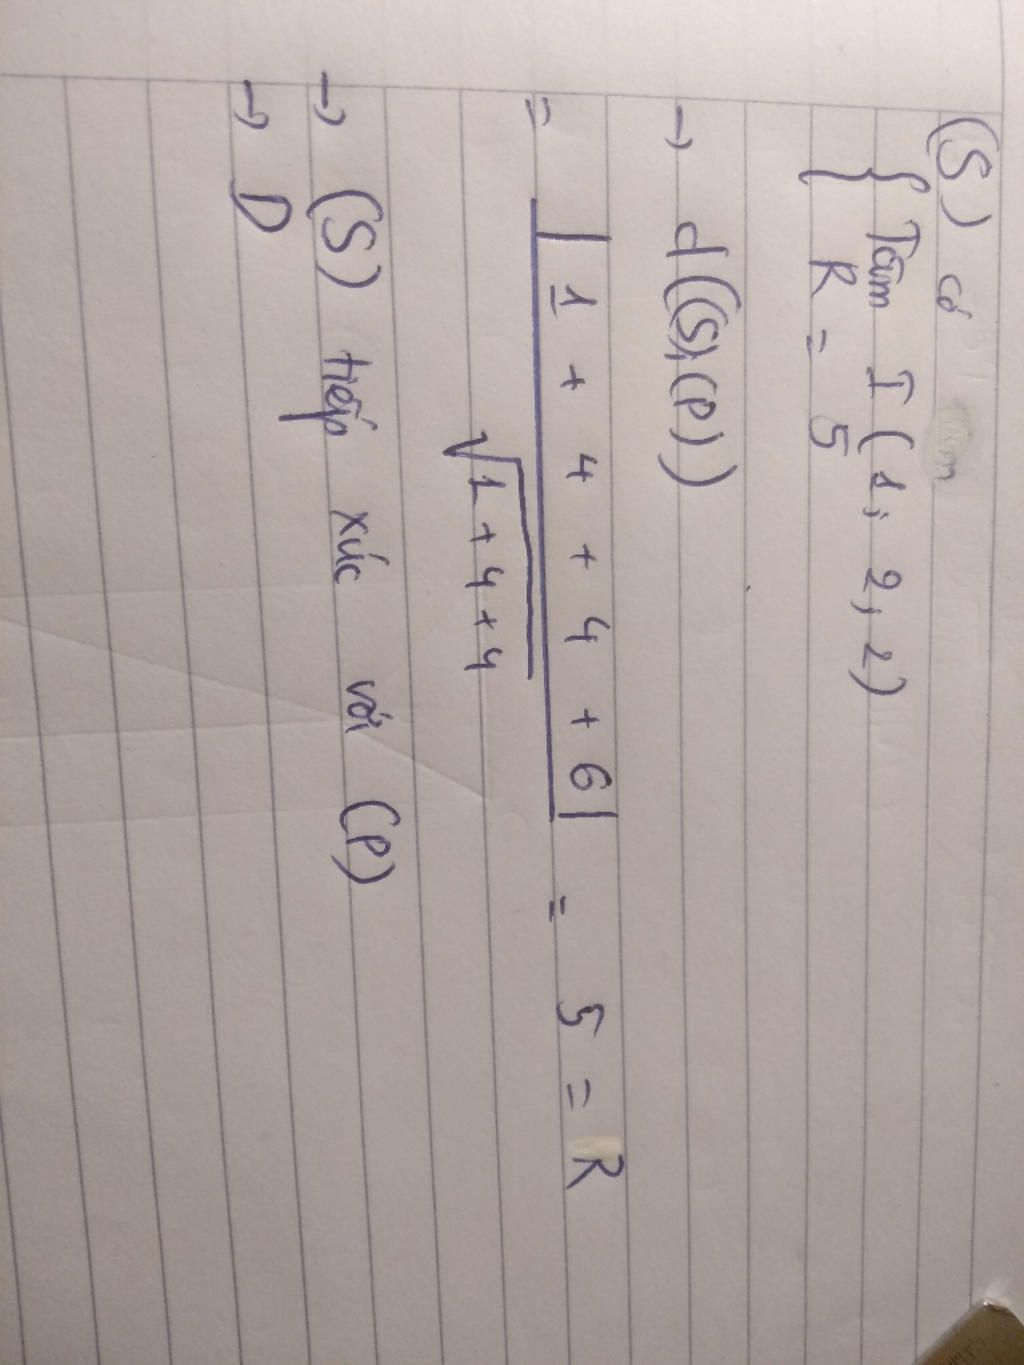 (S) có
{ Tâm I (1; 2; 2)
R = 5
→ d((S), (P))
= |1 + 4 + 4 + 6| / √1+4+4 = 5 = R
→ (S) tiếp xúc với (P)
→ D